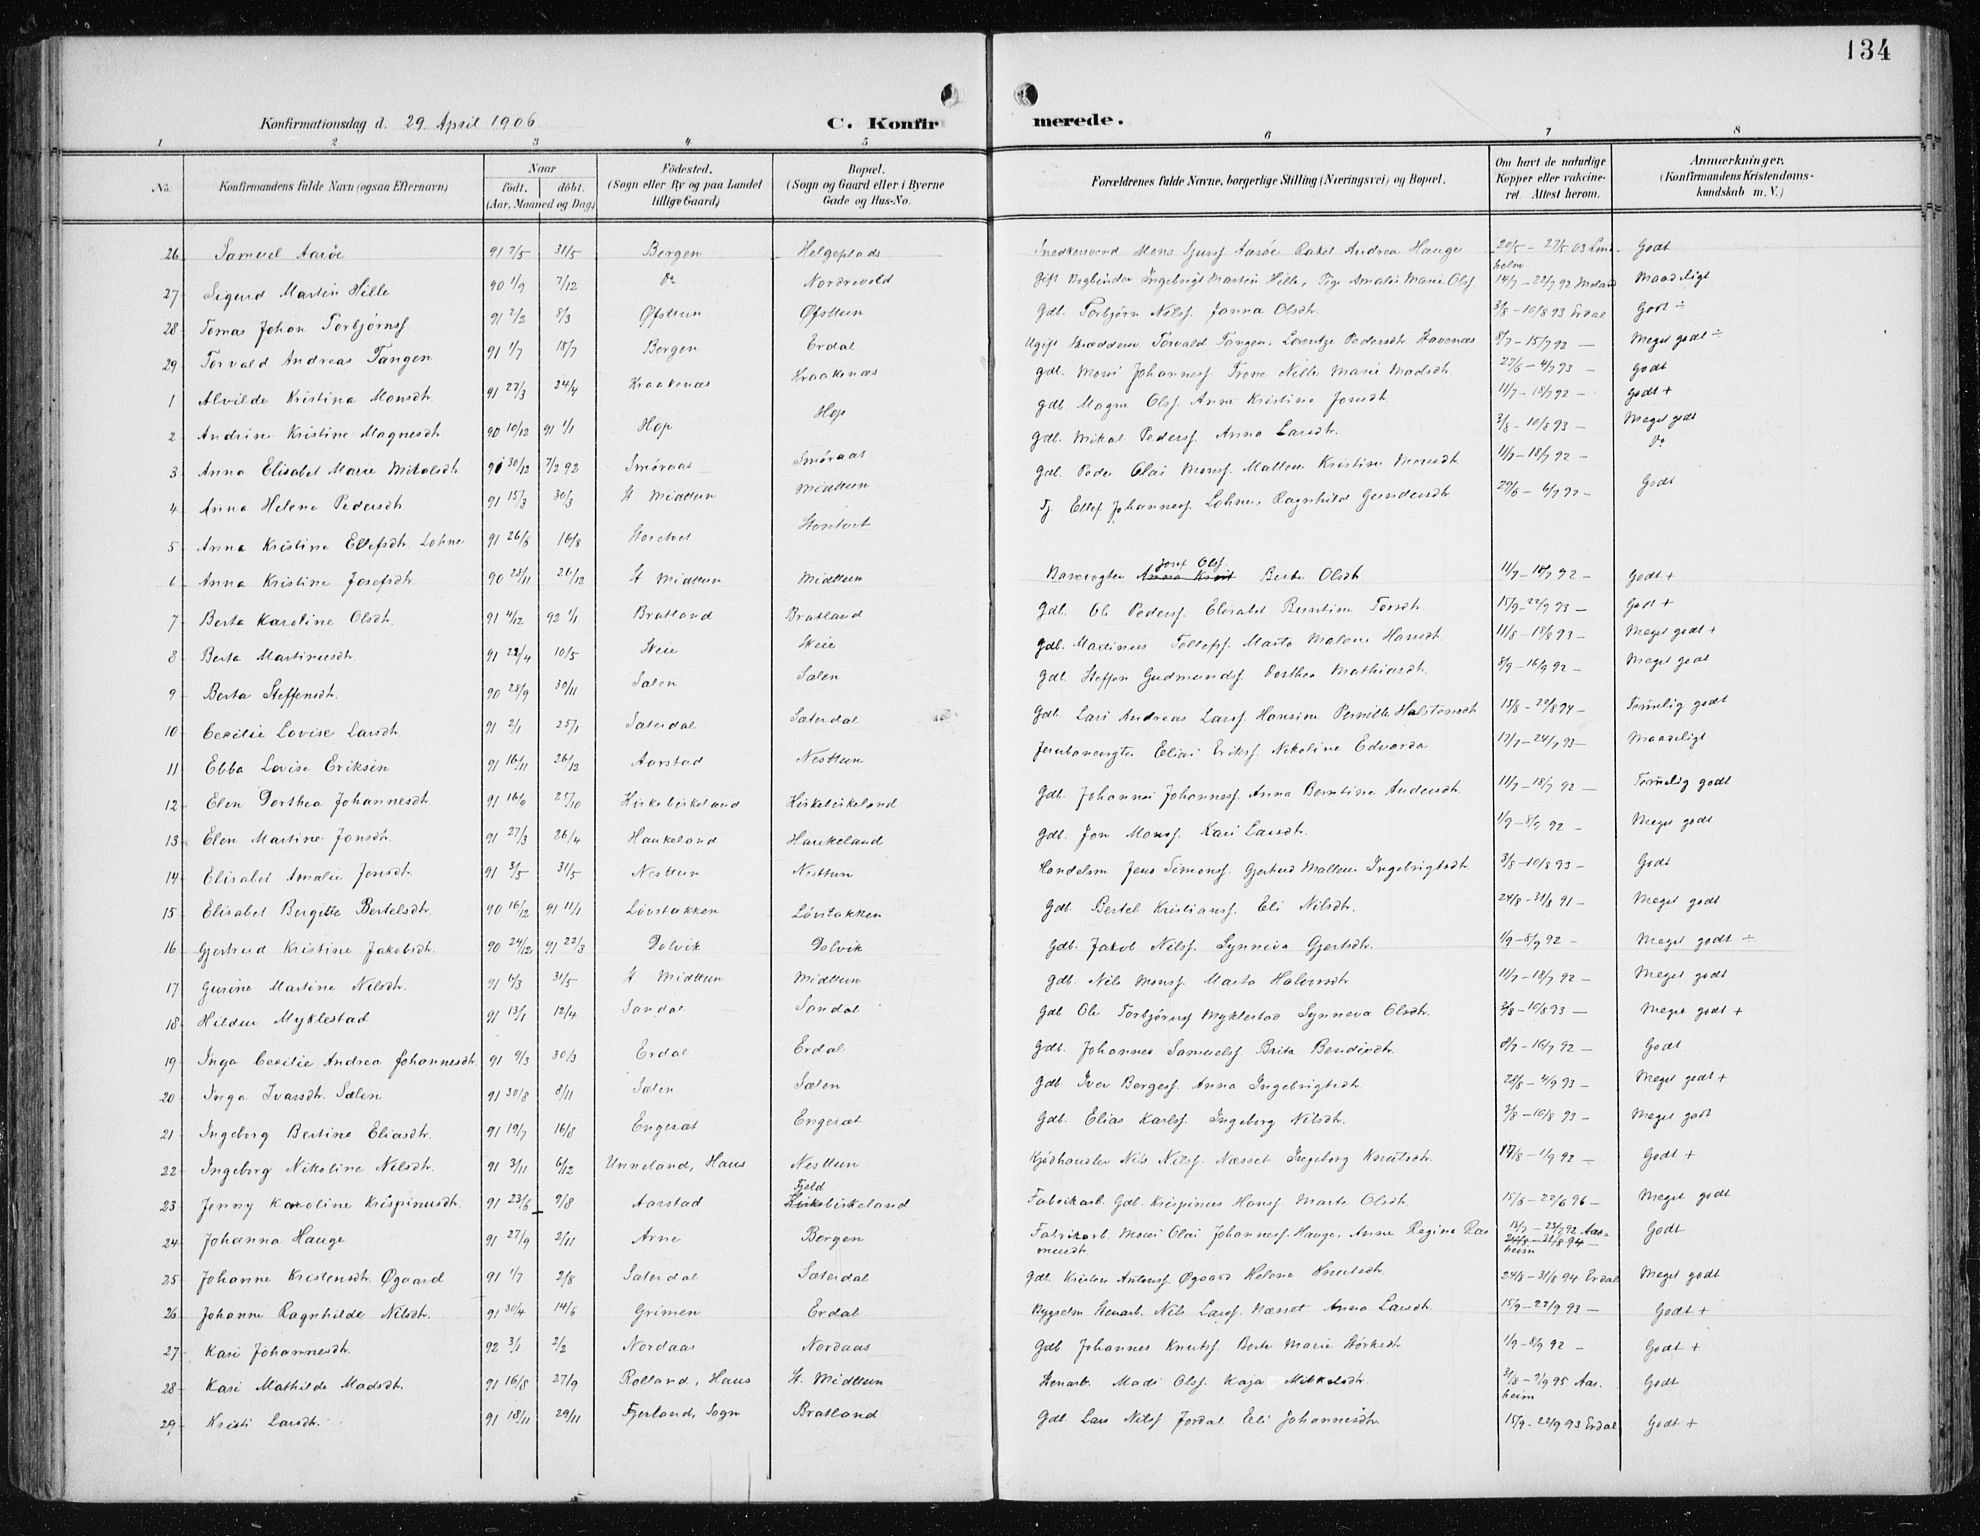 134
Konfirmationsdag d. 29 April 1906
C. Konfirmerede.
1 2 3 4 5 6 7 8
No. Konfirmandens fulde Navn (ogsaa Efternavn) Naar födt. döbt. (Aar, Maaned og Dag) Födested. (Sogn eller By og paa Landet tillige Gaard) Bopæl. (Sogn og Gaard eller i Byerne Gade og Hus-No. Forældrenes fulde Navne, borgerlige Stilling (Næringsvei) og Bopæl. Om havt de naturlige Kopper eller vakcineret. Attest herom. Anmærkninger. (Konfirmandens Kristendomskundskab m. V.)
26 Samuel Aarøe 91 7/5 31/5 Bergen Helgeplads Mons Aarøe Rakel Andrea Hauge 20/5 – 27/5 03 Godt
27 Sigurd Martin Hille 90 1/9 7/12 Do Nordrevold Ingebrigt Martin Hille, Pige Amalie Marie Olsf. 14/7 – 22/7 92 Maadeligt
28 Tomas Johan Torbjørnsf. 91 2/2 8/3 Øfsttun Øfsttun Gdb. Torbjørn Nilsf. Janna Olsdt. 3/8 – 10/8 93 Erdal Godt ÷
29 Torvald Andreas Tangen 91 1/7 18/7 Bergen Erdal Ugift Skrædder Torvald Tangen, Lorentze Pedersdt. Havenæs 8/7 – 15/7 92 — Meget godt ÷
1 Alvilde Kristina Monsdt. 91 27/3 24/4 Kraakenæs Kraakenæs Gdb. Mons Johannesf. Trone Nille Marie Madsdt. 27/6 – 4/7 93 – Godt
2 Andrine Kristine Magnesdt. 90 10/12 91 1/1 Hop Hop Gdb. Magne Olsf. Anne Kristine Jonsdt. 11/7 – 18/7 92 – Godt +
3 Anna Elisabet Marie Mikalsdt. 91 30/12 7/2 92 Smøraas Smøraas Gdb. Mikal Pedersf. Anna Larsdt. 3/8 – 10/8 93 – Meget godt
4 Anna Helene Pedersdt. 91 15/3 30/3 St Midttun Midttun Gdb. Peder Olai Monsf. Mallene Kristine Monsdt. 11/7 – 18/7 92 – Do
5 Anna Kristine Ellefsdt. Lohne 91 26/6 16/8 Storetvet Storetvet Tj. Ellef Johannesf. Lohne, Ragnhild Gundersdt. 29/6 – 6/7 92 – Godt
6 Anna Kristine Josefsdt. 90 28/11 26/12 St Midttun Midttun Banevogter Josef Olsf. Berte Olsdt. 11/7 – 18/7 92 – Godt +
7 Berta Karoline Olsdt. 91 4/12 92 1/1 Bratland Bratland Gdb. Ole Pedersf. Elisabet Berntine Torsdt. 15/9 – 22/9 93 – Godt +
8 Berta Martinusdt. 91 22/4 10/5 Skeie Skeie Gdb. Martinus Tollefsf. Marta Malene Hansdt. 11/8 – 18/8 93 – Meget godt +
9 Berta Steffensdt. 90 28/9 30/11 Sælen Sælen Gdb. Steffen Gudmundsf. Dorthea Mathiasdt. 8/9 – 16/9 92 – Meget godt
10 Cecilie Lovise Larsdt. 91 2/1 25/1 Sæterdal Sæterdal Gdb. Lars Andreas Larsf. Hansine Pernille Halstensdt. 15/8 – 22/8 94 – Temmelig godt
11 Ebba Lovise Eriksen 91 16/11 26/12 Aarstad Nesttun Elias Eriksf. Nikoline Edvarda 17/7 – 24/7 93 – Maadeligt
12 Elen Dorthea Johannesdt. 91 16/9 25/10 Kirkebirkeland Kirkebirkeland Gdb. Johannes Johannesf. Anna Berntine Andersdt. 11/7 – 18/7 92 – Temmelig godt
13 Elen Martine Jonsdt. 91 27/3 26/4 Haukeland Haukeland Gdb. Jon Monsf. Kari Larsdt. 1/9 – 8/9 92 – Meget godt
14 Elisabet Amalie Jensdt. 91 3/5 31/5 Nesttun Nesttun Handelsm. Jens Simonsf. Gjertrud Mallene Ingebrigtsdt. 3/8 – 10/8 93 – Godt
15 Elisabet Bergitte Bertelsdt. 90 16/12 91 11/1 Løvstakken Løvstakken Gdb. Bertel Kristiansf. Eli Nilsdt. 24/8 – 31/8 91 – Meget godt
16 Gjertrud Kristine Jakobsdt. 90 24/12 91 22/3 Dolvik Dolvik Gdb. Jakob Nilsf. Synneva Gjertsdt. 1/9 – 8/9 92 – Meget godt ÷
17 Gurine Martine Nilsdt. 91 6/3 31/5 St Midttun Midttun Gdb. Nils Monsf. Marta Halvorsdt. 11/7 – 18/7 92 – Meget godt
18 Hildur Myklestad 91 13/1 12/4 Sandal Sandal Gdb Ole Torbjørnsf Myklestad Synneva Olsdt. 3/8 – 10/8 93 – Meget godt +
19 Inga Cecilie Andrea Johannesdt. 91 9/3 30/3 Erdal Erdal Gdb. Johannes Samuelsf. Brita Bendixdt. 8/7 – 16/7 92 – Godt
20 Inga Ivarsdt. Sælen 91 30/8 8/11 Sælen Sælen Gdb. Iver Borgesf. Anna Ingebrigtsdt. 28/8 – 4/9 93 – Meget godt +
21 Ingeborg Bertine Eliasdt. 91 19/7 16/8 Engesæt Engesæt Gdb. Elias Karlsf. Ingeborg Nilsdt. 3/8 – 10/8 93 – Meget godt
22 Ingeborg Nikoline Nilsdt. 91 3/11 6/12 Unneland, Haus Nesttun Kjødhandler Nils Nilsf. Næsset Ingeborg Knutsdt. 17/8 – 1/9 92 – Godt +
23 Jenny Karoline Krispinusdt. 91 23/6 9/8 Aarstad Fjeldbirkeland Fabrikarb. Gdb. Krispinus Hansf. Marte Olsdt. 15/6 – 22/6 96 – Meget godt
24 Johanna Hauge 91 27/9 2/11 Arne Bergen Fabrikarb. Mons Olai Johannesf. Hauge, Anne Regine Rasmusdt. 13/7 – 23/7 92 Aasheim Godt
25 Johanne Kristensdt. Øgaard 91 1/7 2/8 Sæterdal Sæterdal Gdb. Kristen Antonsf. Øgaard Helene Knutsdt. 24/8 – 31/8 94 Erdal Meget godt
26 Johanne Ragnhilde Nilsdt. 91 30/4 14/6 Grimen Erdal Bygselm. Stenarb. Nils Larsf. Næsset Anna Larsdt. 15/9 – 22/9 93 – Godt +
27 Kari Johannesdt. 92 3/1 2/2 Nordaas Nordaas Gdb Johannes Knutsf. Berte Marie Størksdt. 1/9 – 8/9 92 – Godt +
28 Kari Mathilde Madsdt. 91 16/8 27/9 Rolland, Haus St. Midttun Stenarb. Mads Olsf. Kaja Mikkelsdt. 31/8 – 7/9 95 Aasheim Godt
29 Kristi Larsdt. 91 18/11 29/11 Fjerland, Sogn Bratland Gdb Lars Nilsf Jordal Eli Johannesdt. 15/9 – 22/9 93 Erdal Godt +